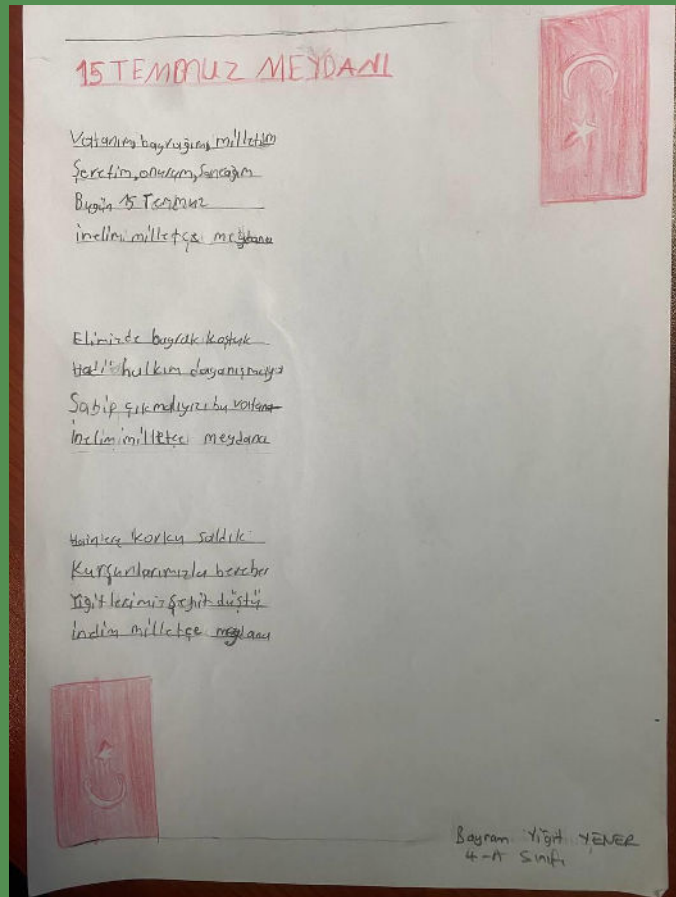 15 TEMMUZ MEYDANI
Vatanım, bayrağım, milletim
Şerefim, onurum, Sancağım
Bugün 15 Temmuz
İnelim milletçe meydana
Elimizde bayrak koştuk
Hadi halkım dayanışmaya
Sahip çıkmalıyız bu vatana
İnelim milletçe meydana
Hainlere korku saldık
Kurşunlarımızla beraber
Yiğitlerimiz şehit düştü
İndim milletçe meydana
Bayram Yiğit YENER
4-A Sınıfı